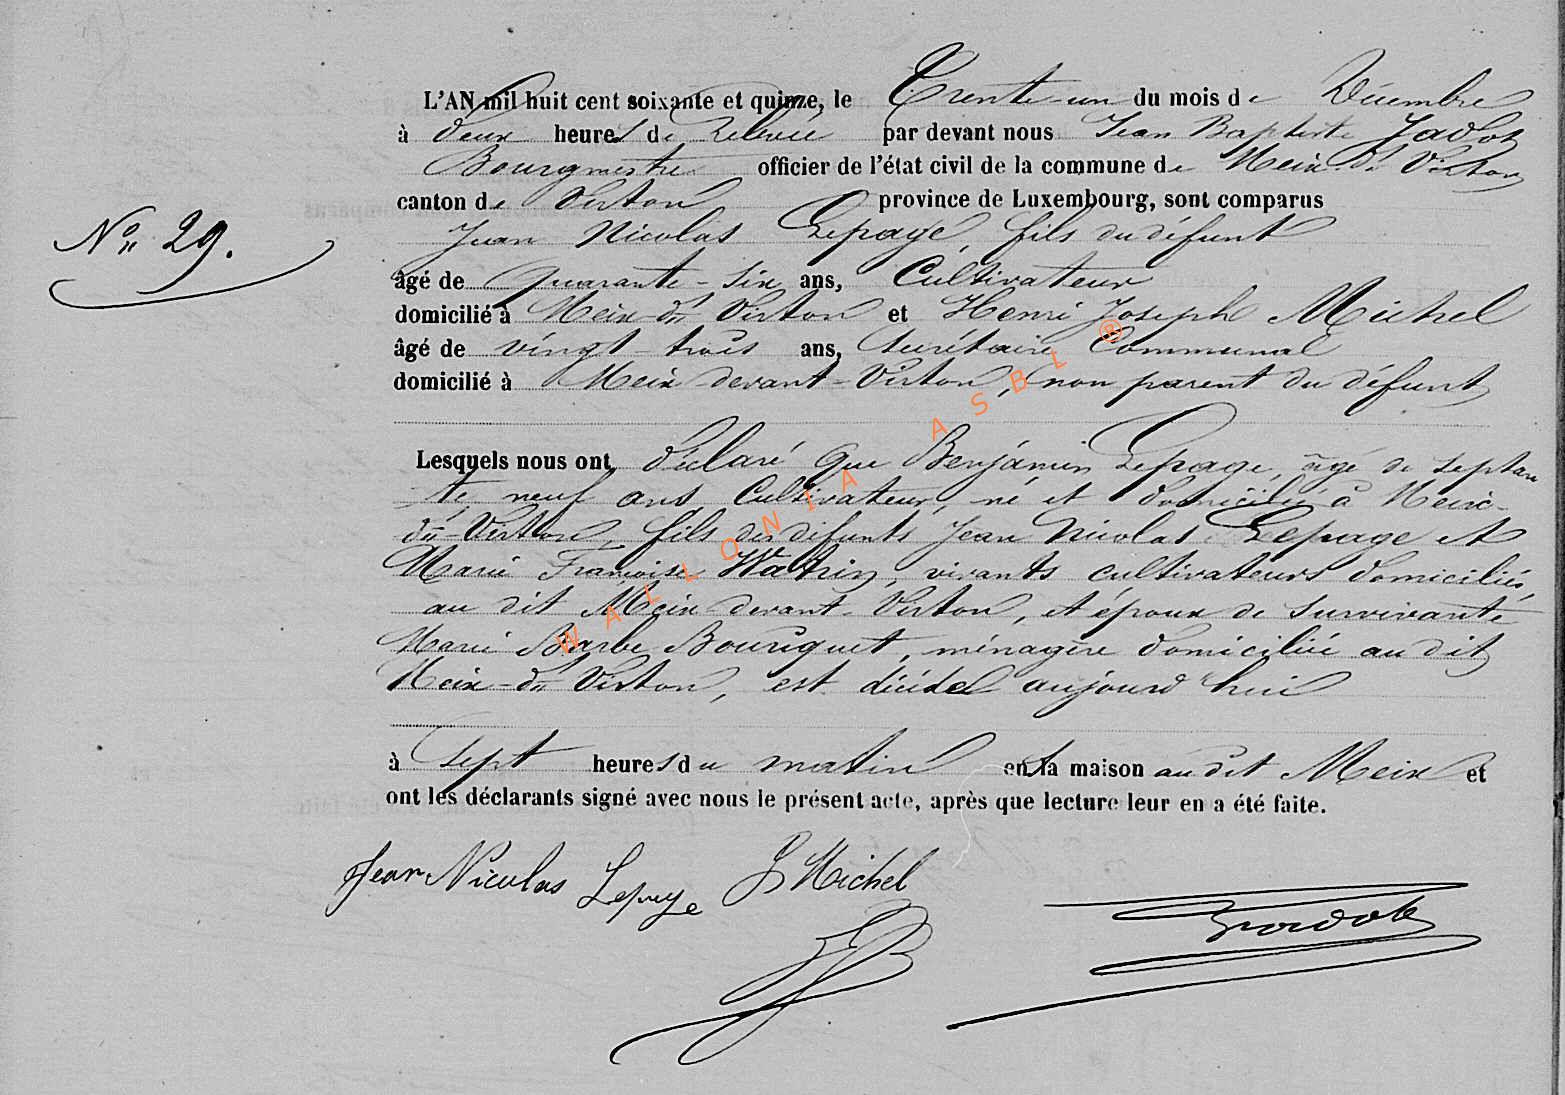 L'AN mil huit cent soixante et quinze, le Trente-un du mois de Décembre
à deux heures de Relevée par devant nous Jean Baptiste Jadot
Bourgmestre officier de l'état civil de la commune de Meix-dt Virton
canton de Virton province de Luxembourg, sont comparus
No 29.
Jean Nicolas Lepage, fils du défunt
âgé de quarante-six ans, Cultivateur
domicilié à Meix-dt Virton et Henri Joseph Michel
âgé de vingt-trois ans, Secrétaire Communal
domicilié à Meix devant-Virton, non parent du défunt
Lesquels nous ont déclaré que Benjamin Lepage, âgé de septan
te neuf ans Cultivateur, né et domicilié à Meix-
dt-Virton, fils des défunts Jean Nicolas Lepage et
Marie Françoise Wathin, vivants cultivateurs domiciliés
au dit Meix devant-Virton, et époux de survivante
Marie Barbe Bouriguet, ménagère domiciliée au dit
Meix-dt Virton, est décédé aujourd'hui
à sept heures du matin en sa maison au dit Meix et
ont les déclarants signé avec nous le présent acte, après que lecture leur en a été faite.
Jean Nicolas Lepage J Michel
Jadot
WALLONIA ASBL ®